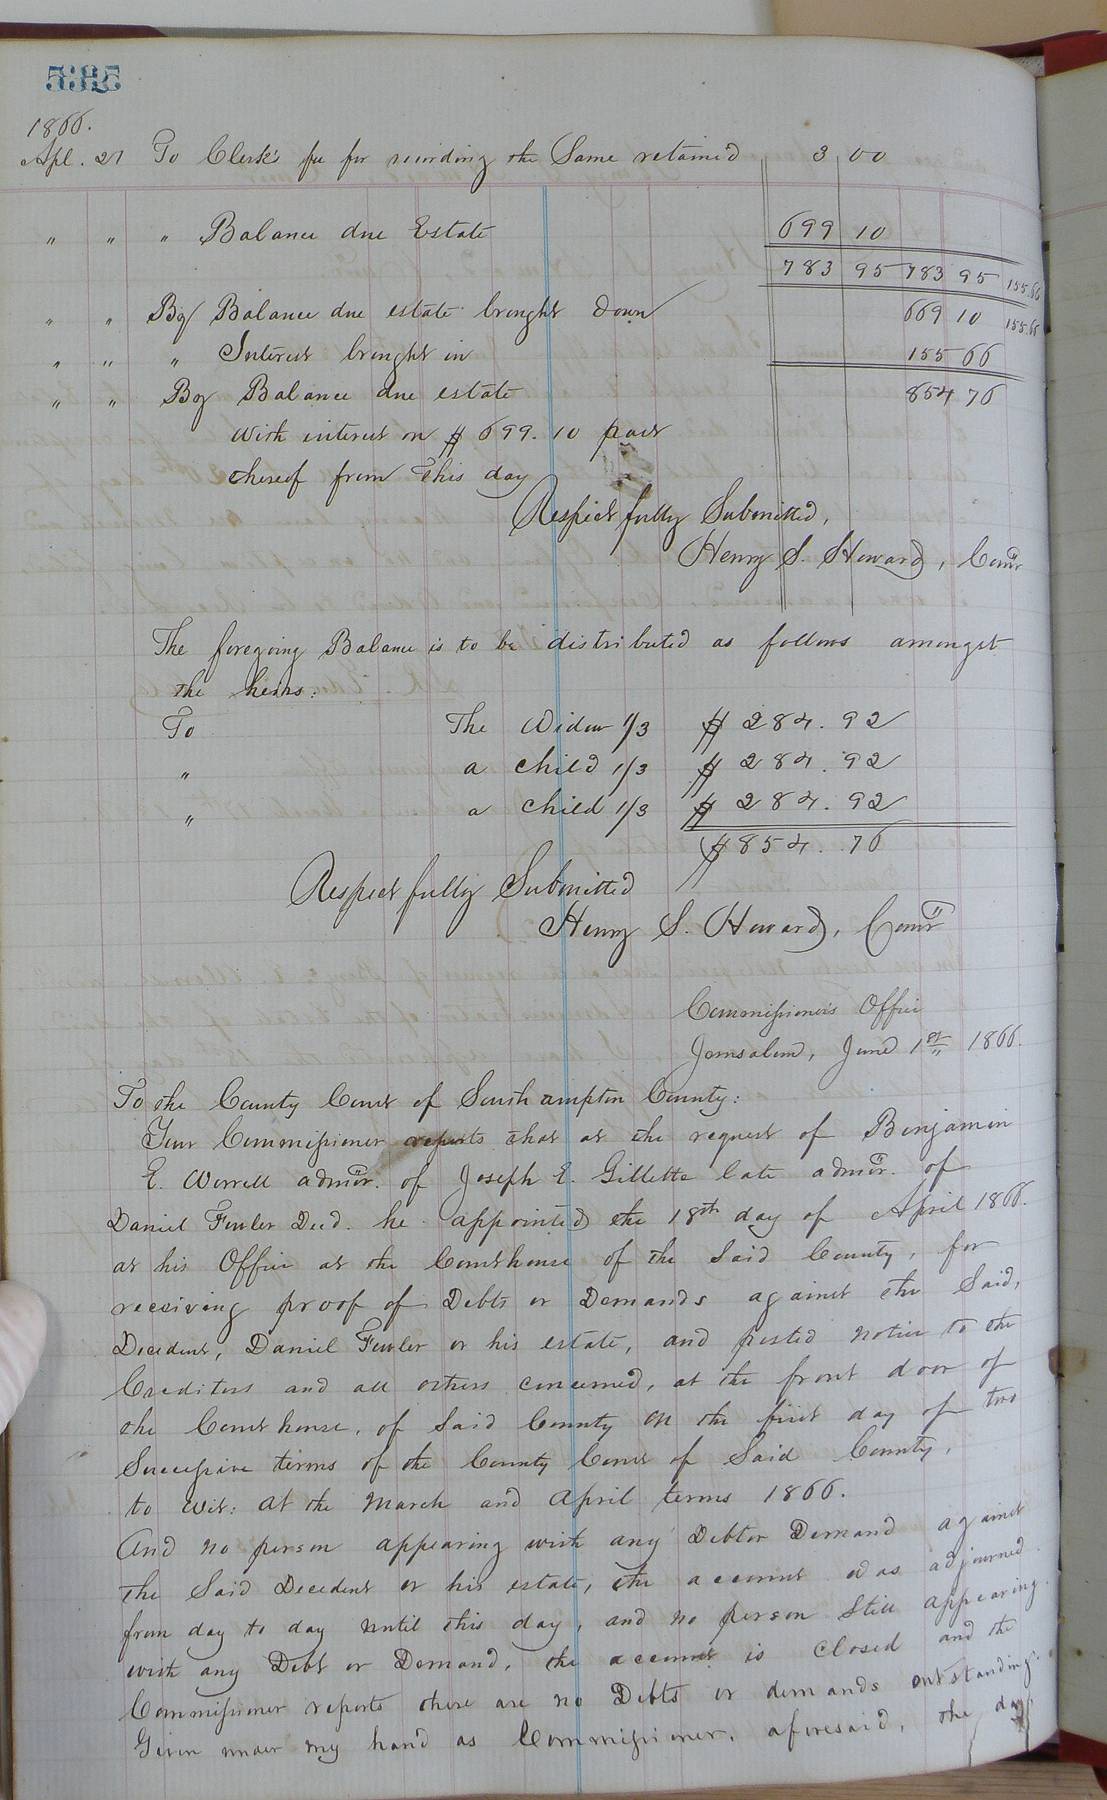 535
1866.
Apl. 21 To Clerk's fee for recording the Same retained 3 00
" " " Balance due Estate 699 10
783 95 783 95 155.66
" " By Balance due estate brought down 669 10 155.66
" " " Interest brought in 155 66
" " By Balance due estate 854 76
With interest on $ 699. 10 part
thereof from this day
Respectfully Submitted,
Henry S. Howard, Comr
The foregoing Balance is to be distributed as follows amongst
the heirs:
To The Widow 1/3 $ 284. 92
" a child 1/3 $ 284. 92
" a child 1/3 $ 284. 92
$ 854. 76
Respectfully Submitted
Henry S. Howard, Comr
Commissioner's Office
Jerusalem, June 1st 1866.
To the County Court of Southampton County:
Your Commissioner reports that at the request of Benjamin
E. Worrell admr. of Joseph E. Gillette late admr. of
Daniel Fowler Decd. he appointed the 18th day of April 1866.
at his Office at the Courthouse of the Said County, for
receiving proof of Debts or Demands against the Said,
Decedent, Daniel Fowler or his estate, and posted notice to the
Creditors and all others concerned, at the front door of
the Courthouse, of Said County on the first day of two
Successive terms of the County Court of Said County,
to wit: at the March and April terms 1866.
And no person appearing with any Debt or Demand against
the Said Decedent or his estate, the account was adjourned
from day to day until this day, and no person Still appearing
with any Debt or Demand, the account is Closed and the
Commissioner reports there are no Debts or demands outstanding.
Given under my hand as Commissioner, aforesaid, the day